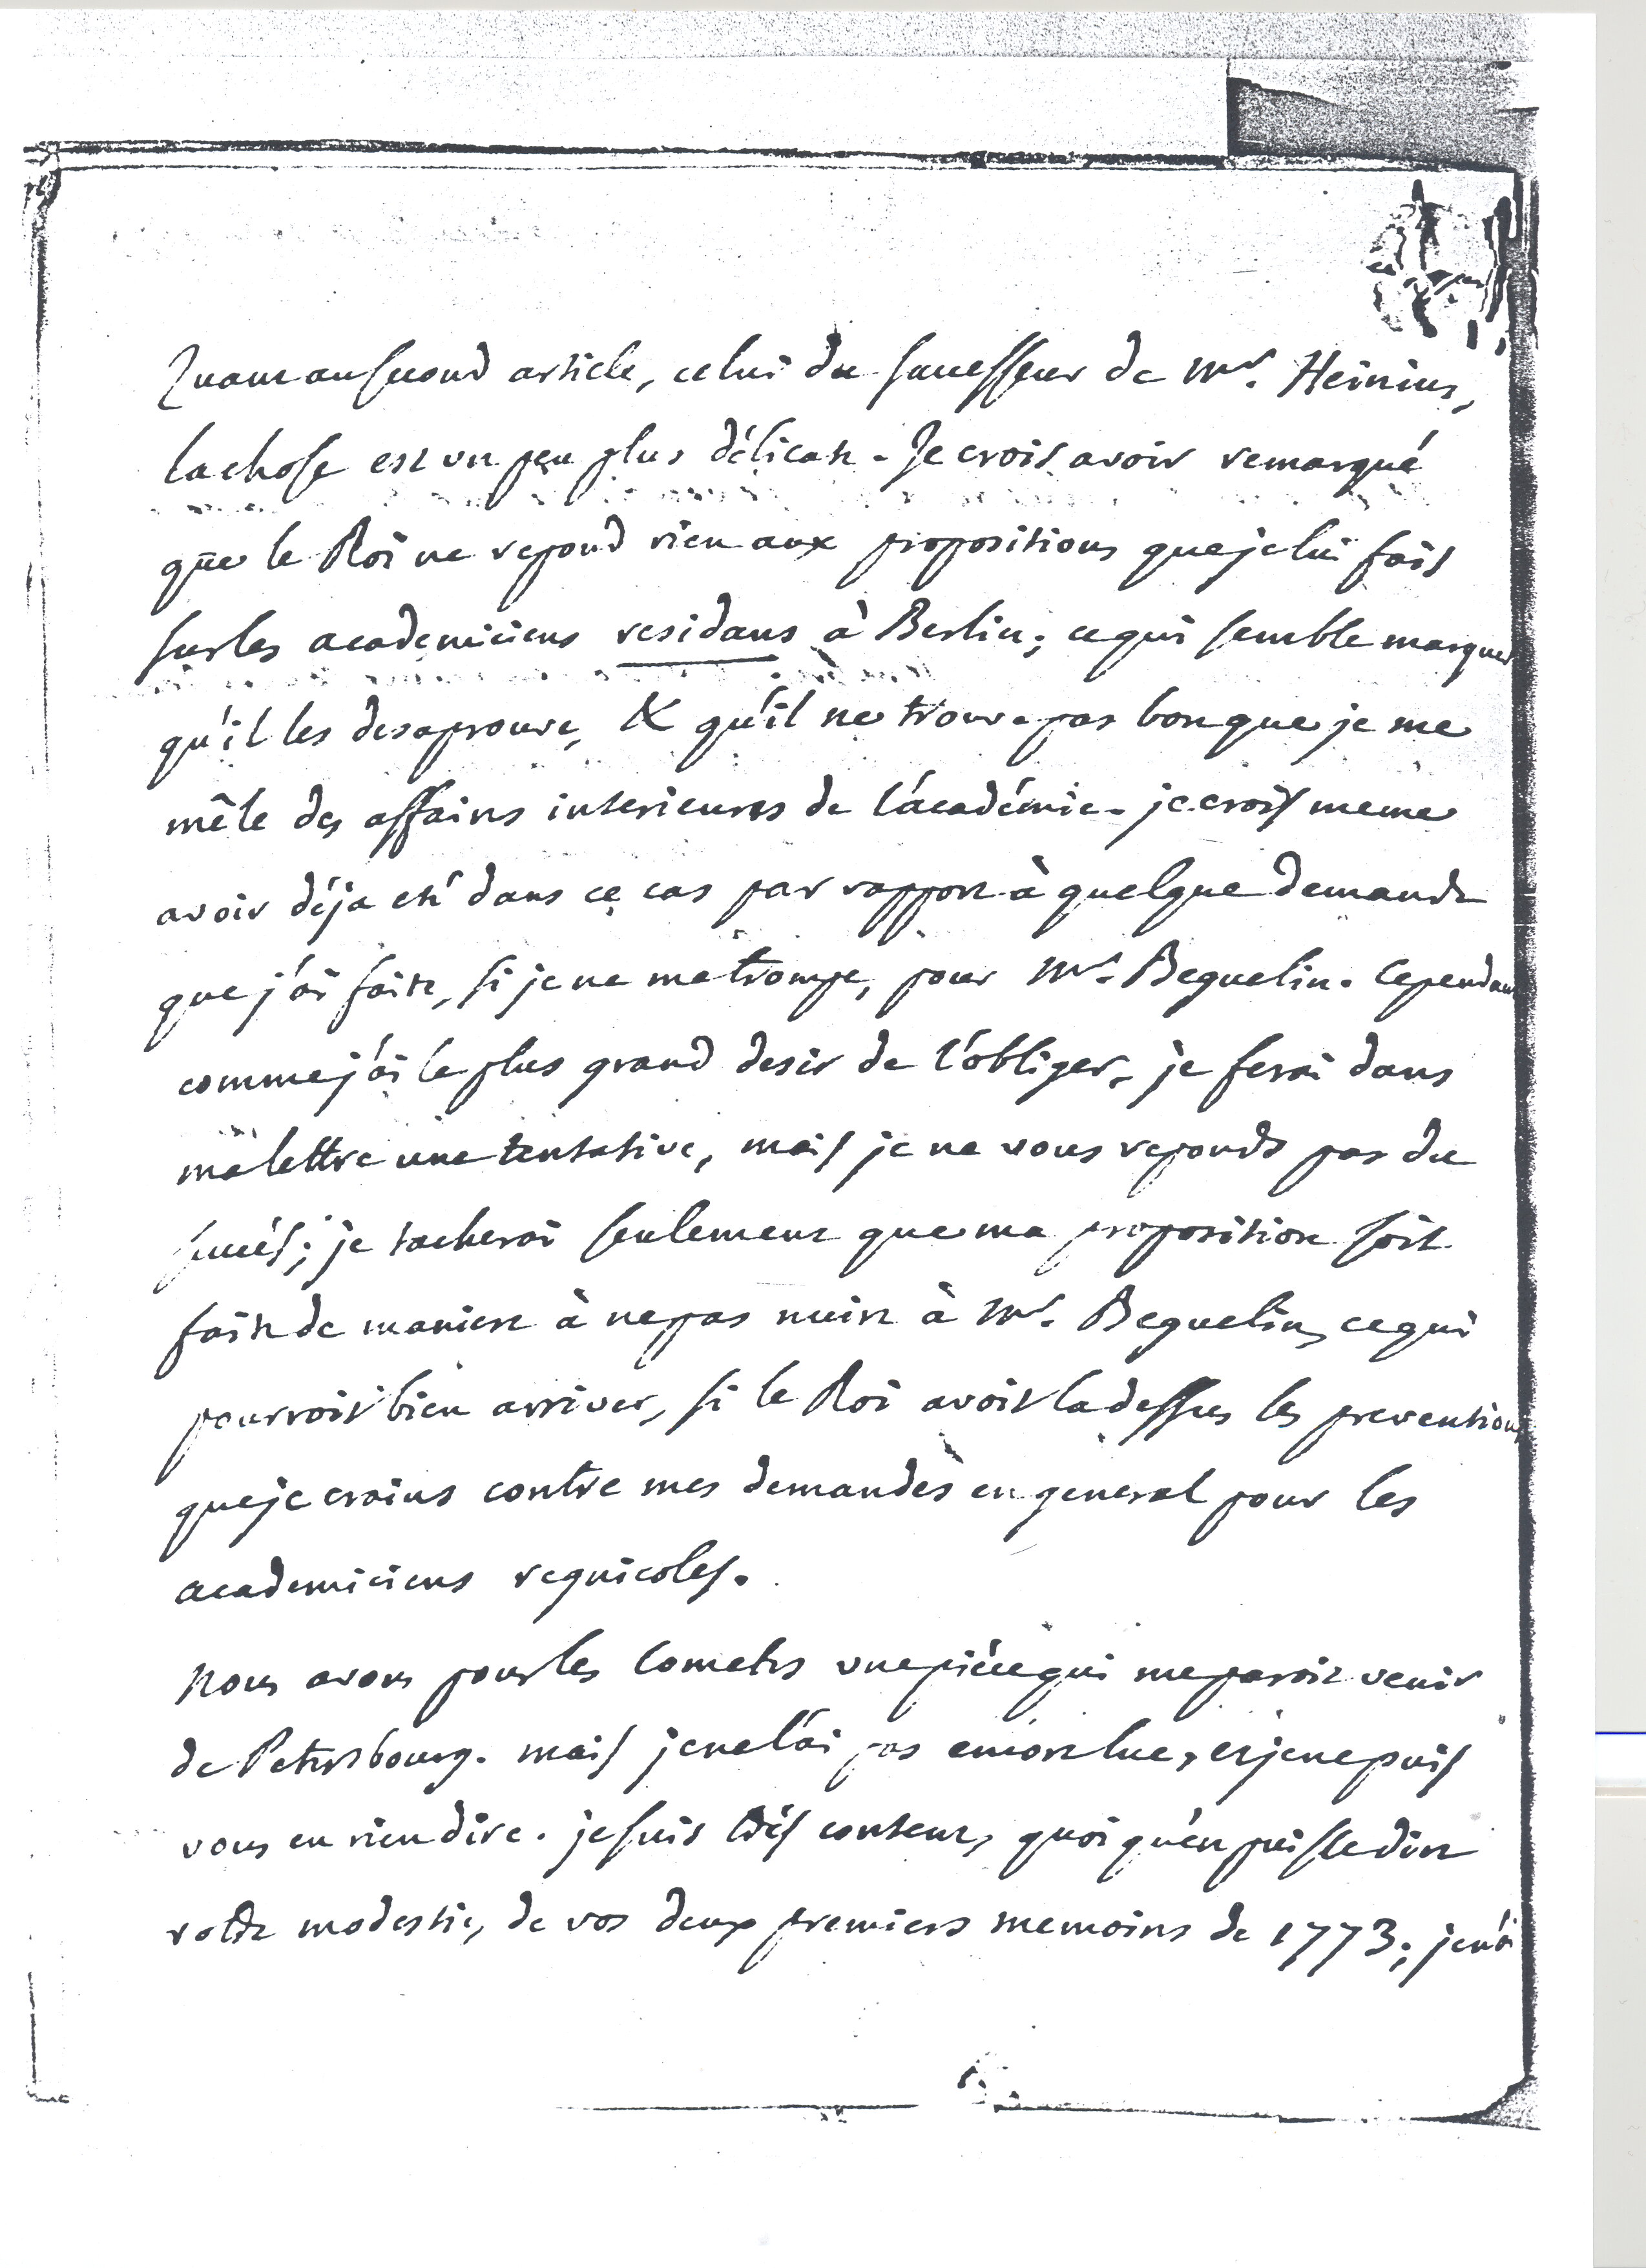 Quant au second article, celui du successeur de Mr. Heinius,
la chose est un peu plus délicate. Je crois avoir remarqué
que le Roi ne repond rien aux propositions que je lui fais
sur les academiciens residans à Berlin; ce qui semble marquer
qu'il les desaprouve, & qu'il ne trouve pas bon que je me
mêle des affaires interieures de l'académie. je crois meme
avoir déja eté dans ce cas par rapport à quelque demande
que j'ai faite, si je ne me trompe, pour Mr. Beguelin. Cependant
comme j'ai le plus grand desir de l'obliger, je ferai dans
ma lettre une tentative, mais je ne vous reponds pas du
succés; je tacherai seulement que ma proposition soit
faite de maniere à ne pas nuire à Mr. Beguelin, ce qui
pourroit bien arriver, si le Roi avoit la dessus les preventions
que je crains contre mes demandes en general pour les
academiciens regnicoles.
Nous avons pour les Cometes une piéce qui me paroit venir
de Petersbourg. mais je ne l'ai pas encore lue, et je ne puis
vous en rien dire. je suis trés content, quoi qu'en puisse dire
votre modestie, de vos deux premiers memoires de 1773; je n'ai